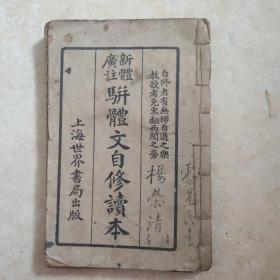 自修者有無師自通之樂
教授者免東翻西閱之勞
新體
廣註
駢體文自修讀本
上海世界書局出版
楊榮清